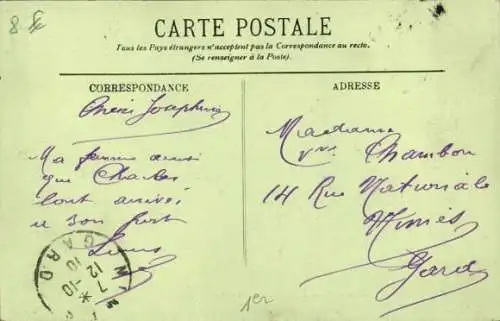 8 fc
CARTE POSTALE
Tous les Pays étrangers n'acceptent pas la Correspondance au recto.
(Se renseigner à la Poste).
CORRESPONDANCE
ADRESSE
Chère Joséphine
Ma femme ainsi
que Charles
sont arrivés
à bon port
Louis
Madame
Vve Chambon
14 Rue Nationale
Nîmes
Gard
7-10
12 10
GARD
1er